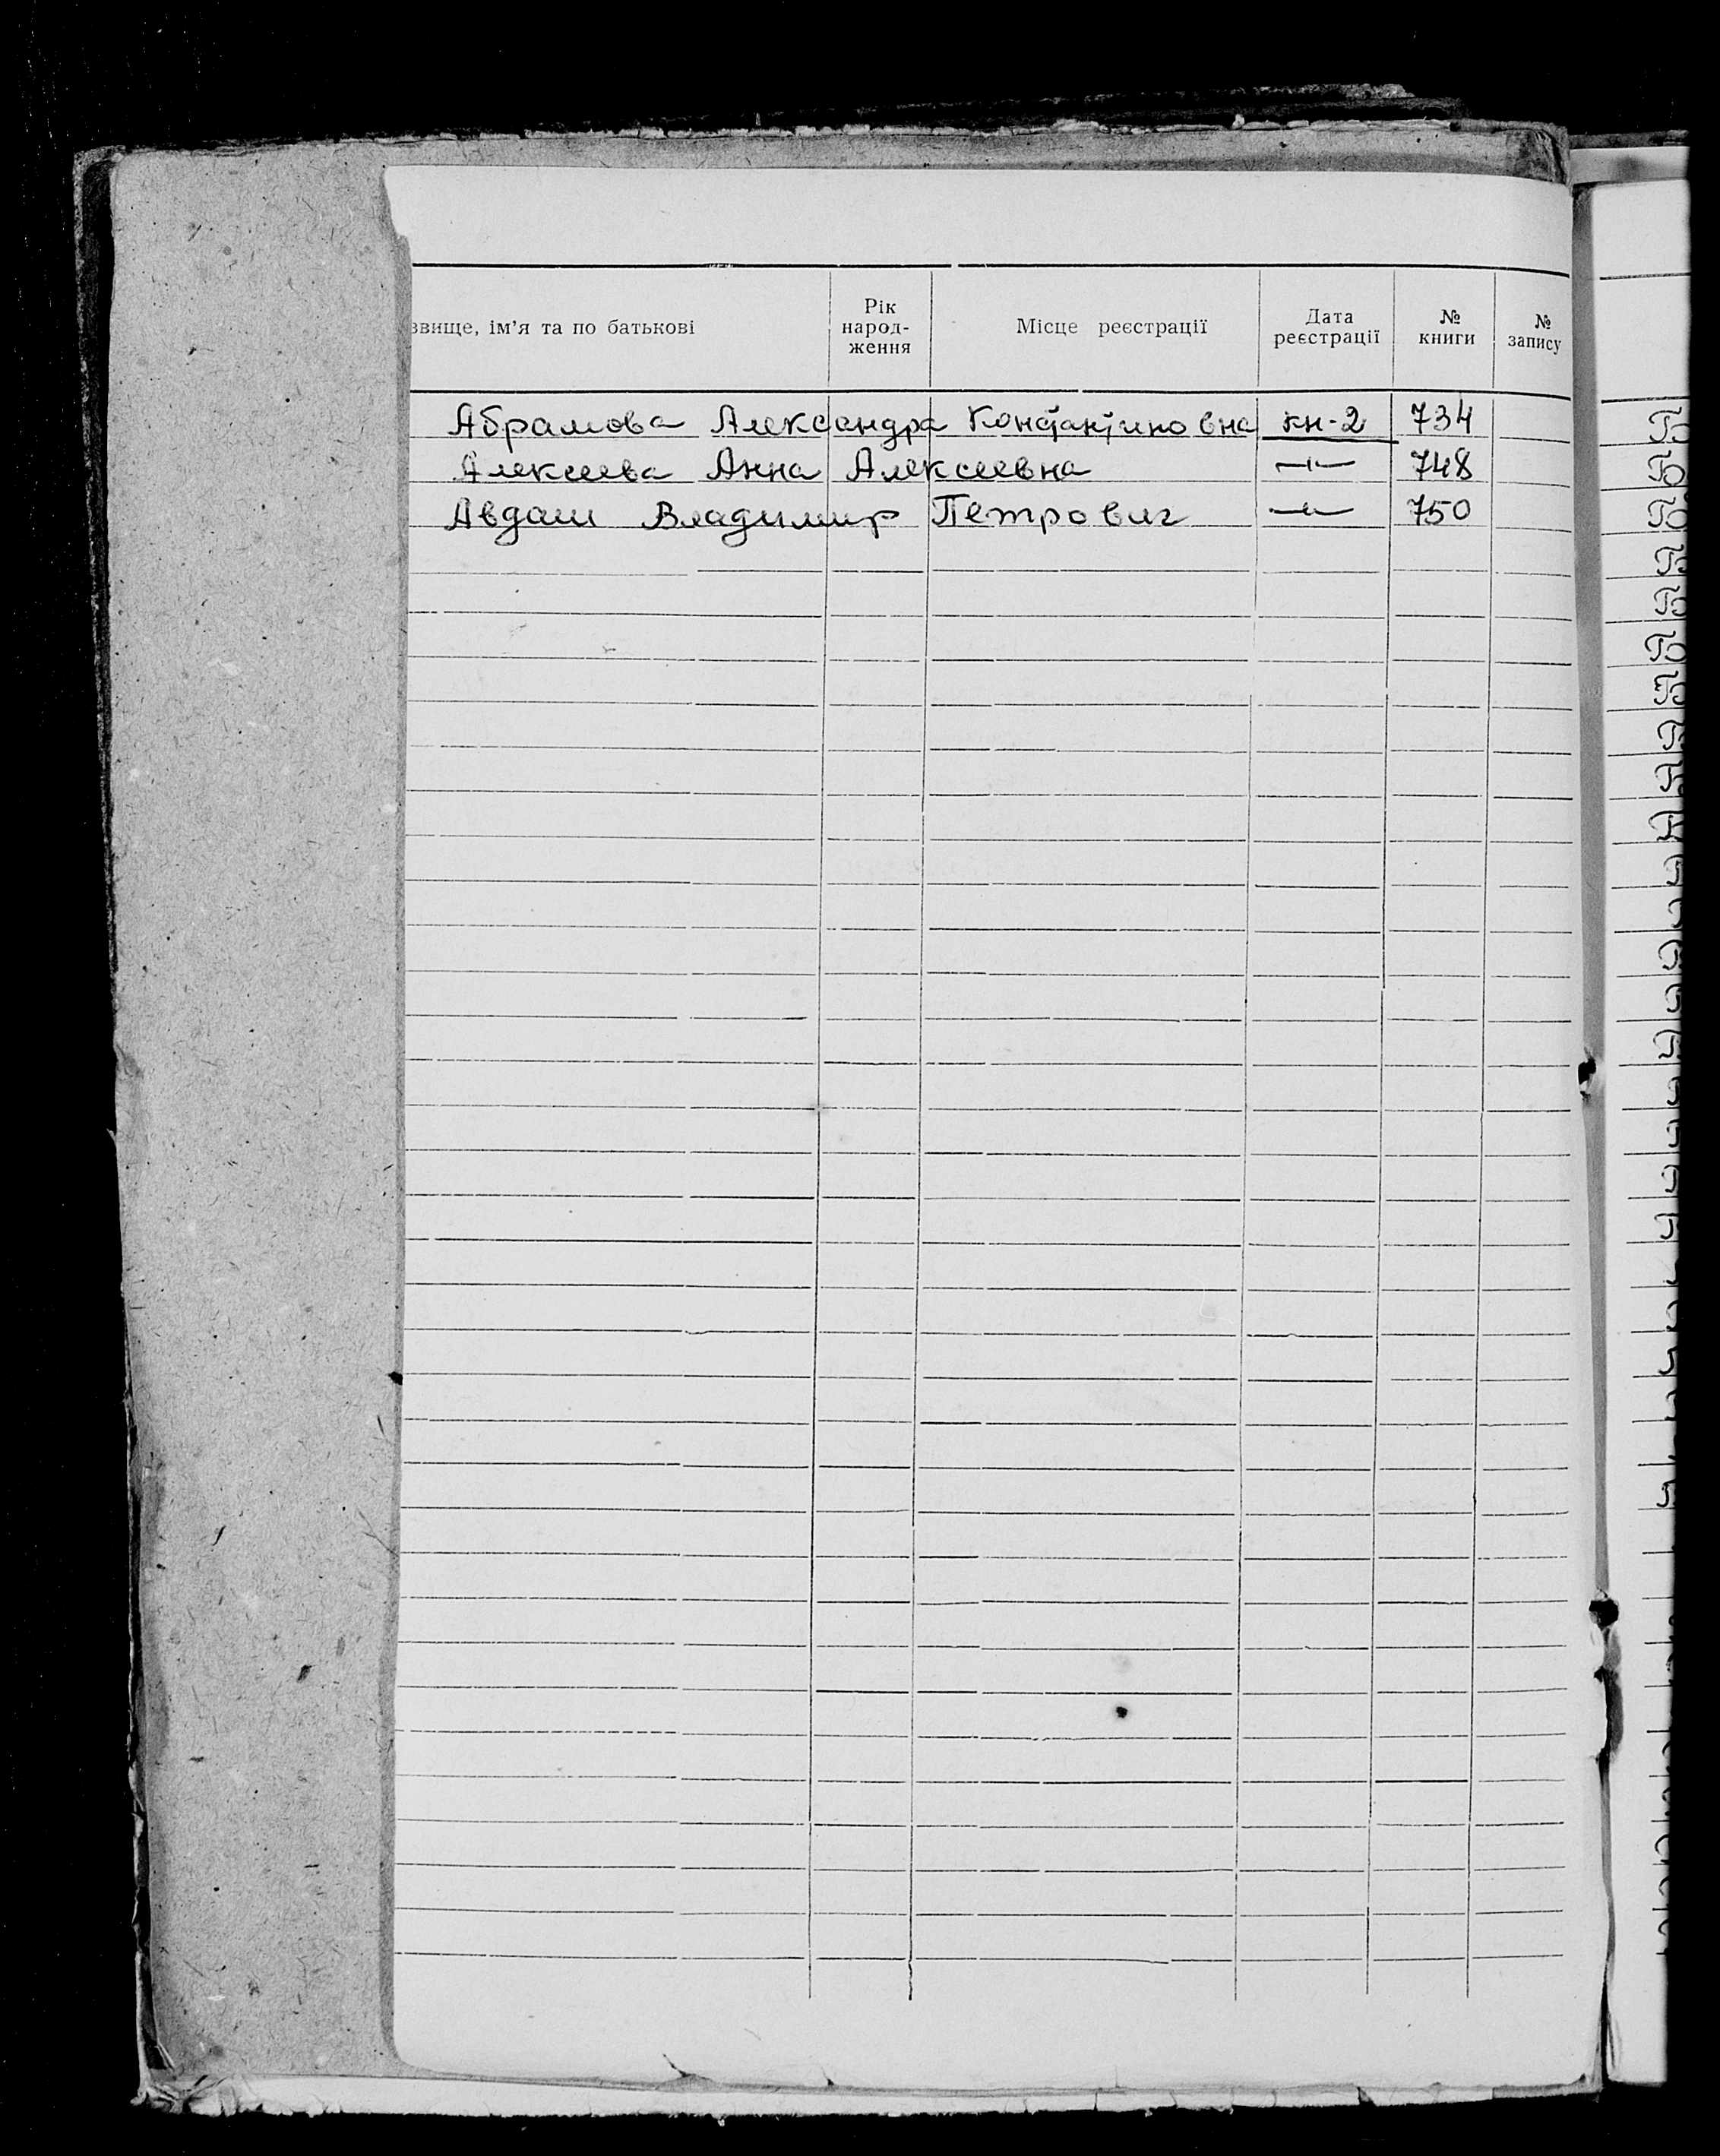 звище, ім'я та по батькові Рік народ- ження Місце реєстрації Дата реєстрації № книги № запису
Абрамова Александра Константиновна кн-2 734
Алексеева Анна Алексеевна —"— 748
Авдаш Владимир Петрович —"— 750